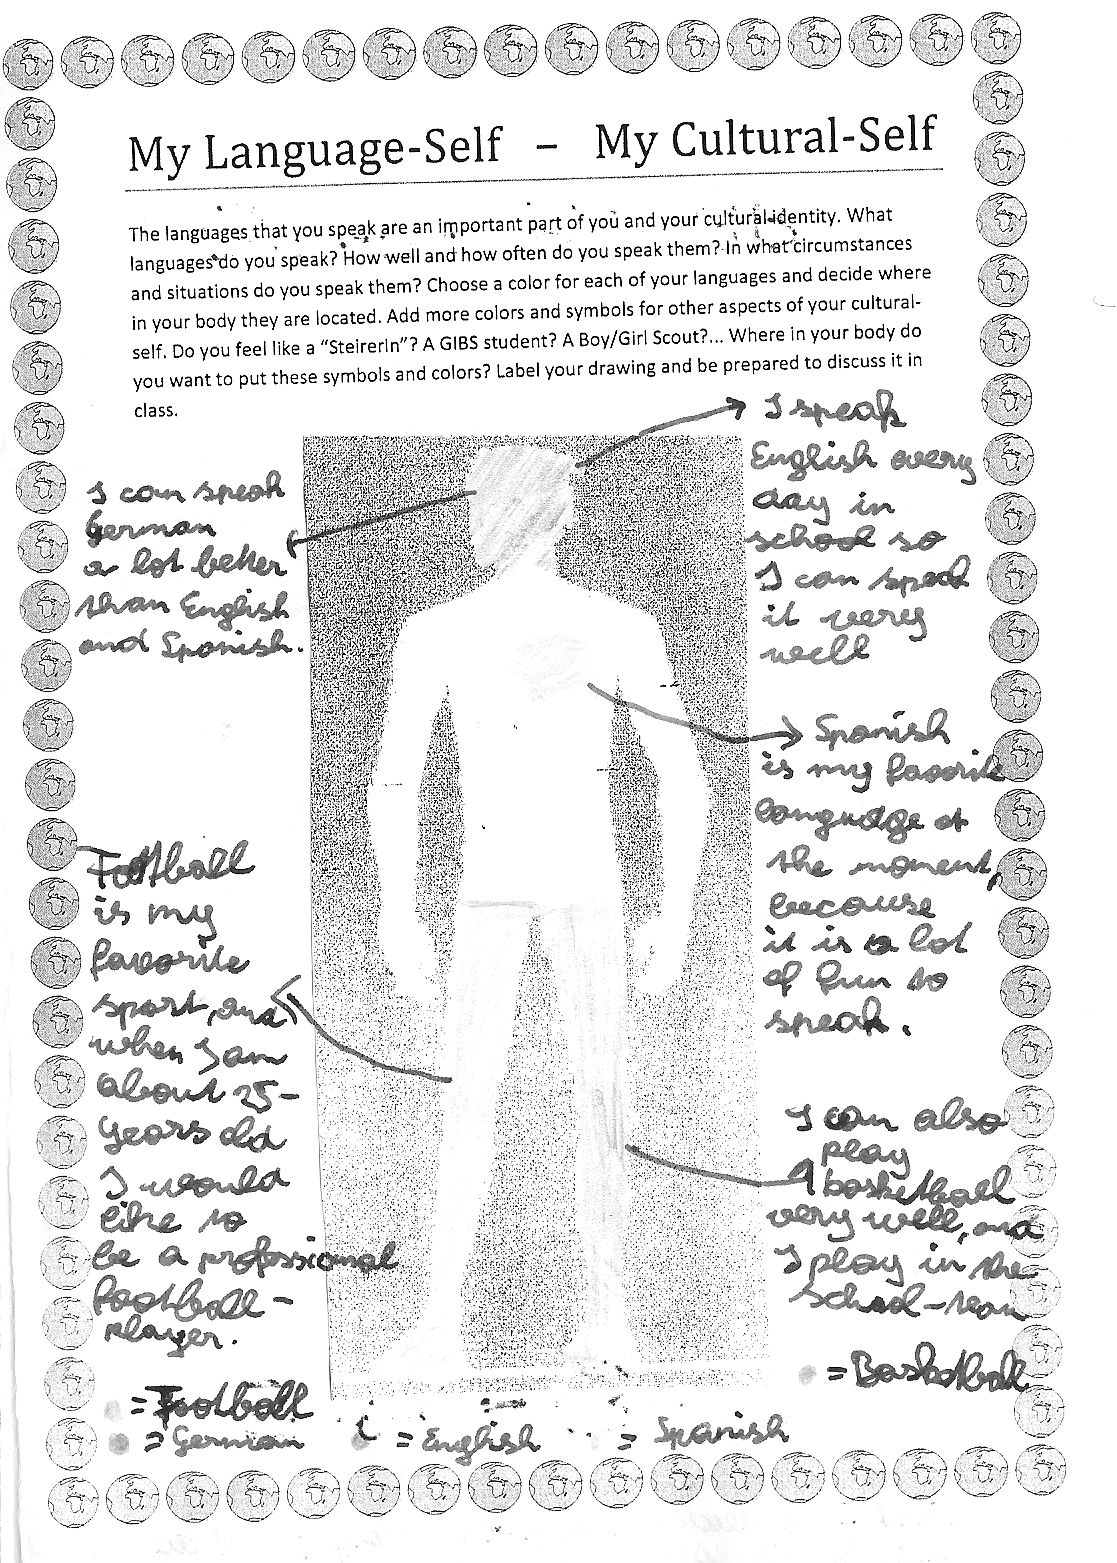 My Language-Self – My Cultural-Self
The languages that you speak are an important part of you and your cultural identity. What
languages do you speak? How well and how often do you speak them? In what circumstances
and situations do you speak them? Choose a color for each of your languages and decide where
in your body they are located. Add more colors and symbols for other aspects of your cultural-
self. Do you feel like a “SteirerIn”? A GIBS student? A Boy/Girl Scout?... Where in your body do
you want to put these symbols and colors? Label your drawing and be prepared to discuss it in
class.
I can speak
German
a lot better
than English
and Spanish.
I speak
English every
day in
school so
I can speak
it very
well
Spanish
is my favorite
language at
the moment,
because
it is a lot
of fun to
speak.
Football
is my
favorite
sport, and
when I am
about 25-
years old
I would
like to
be a professional
football-
player.
I can also
play
basketball
very well, and
I play in the
school-team
= Basketball
= Football
= German = English = Spanish